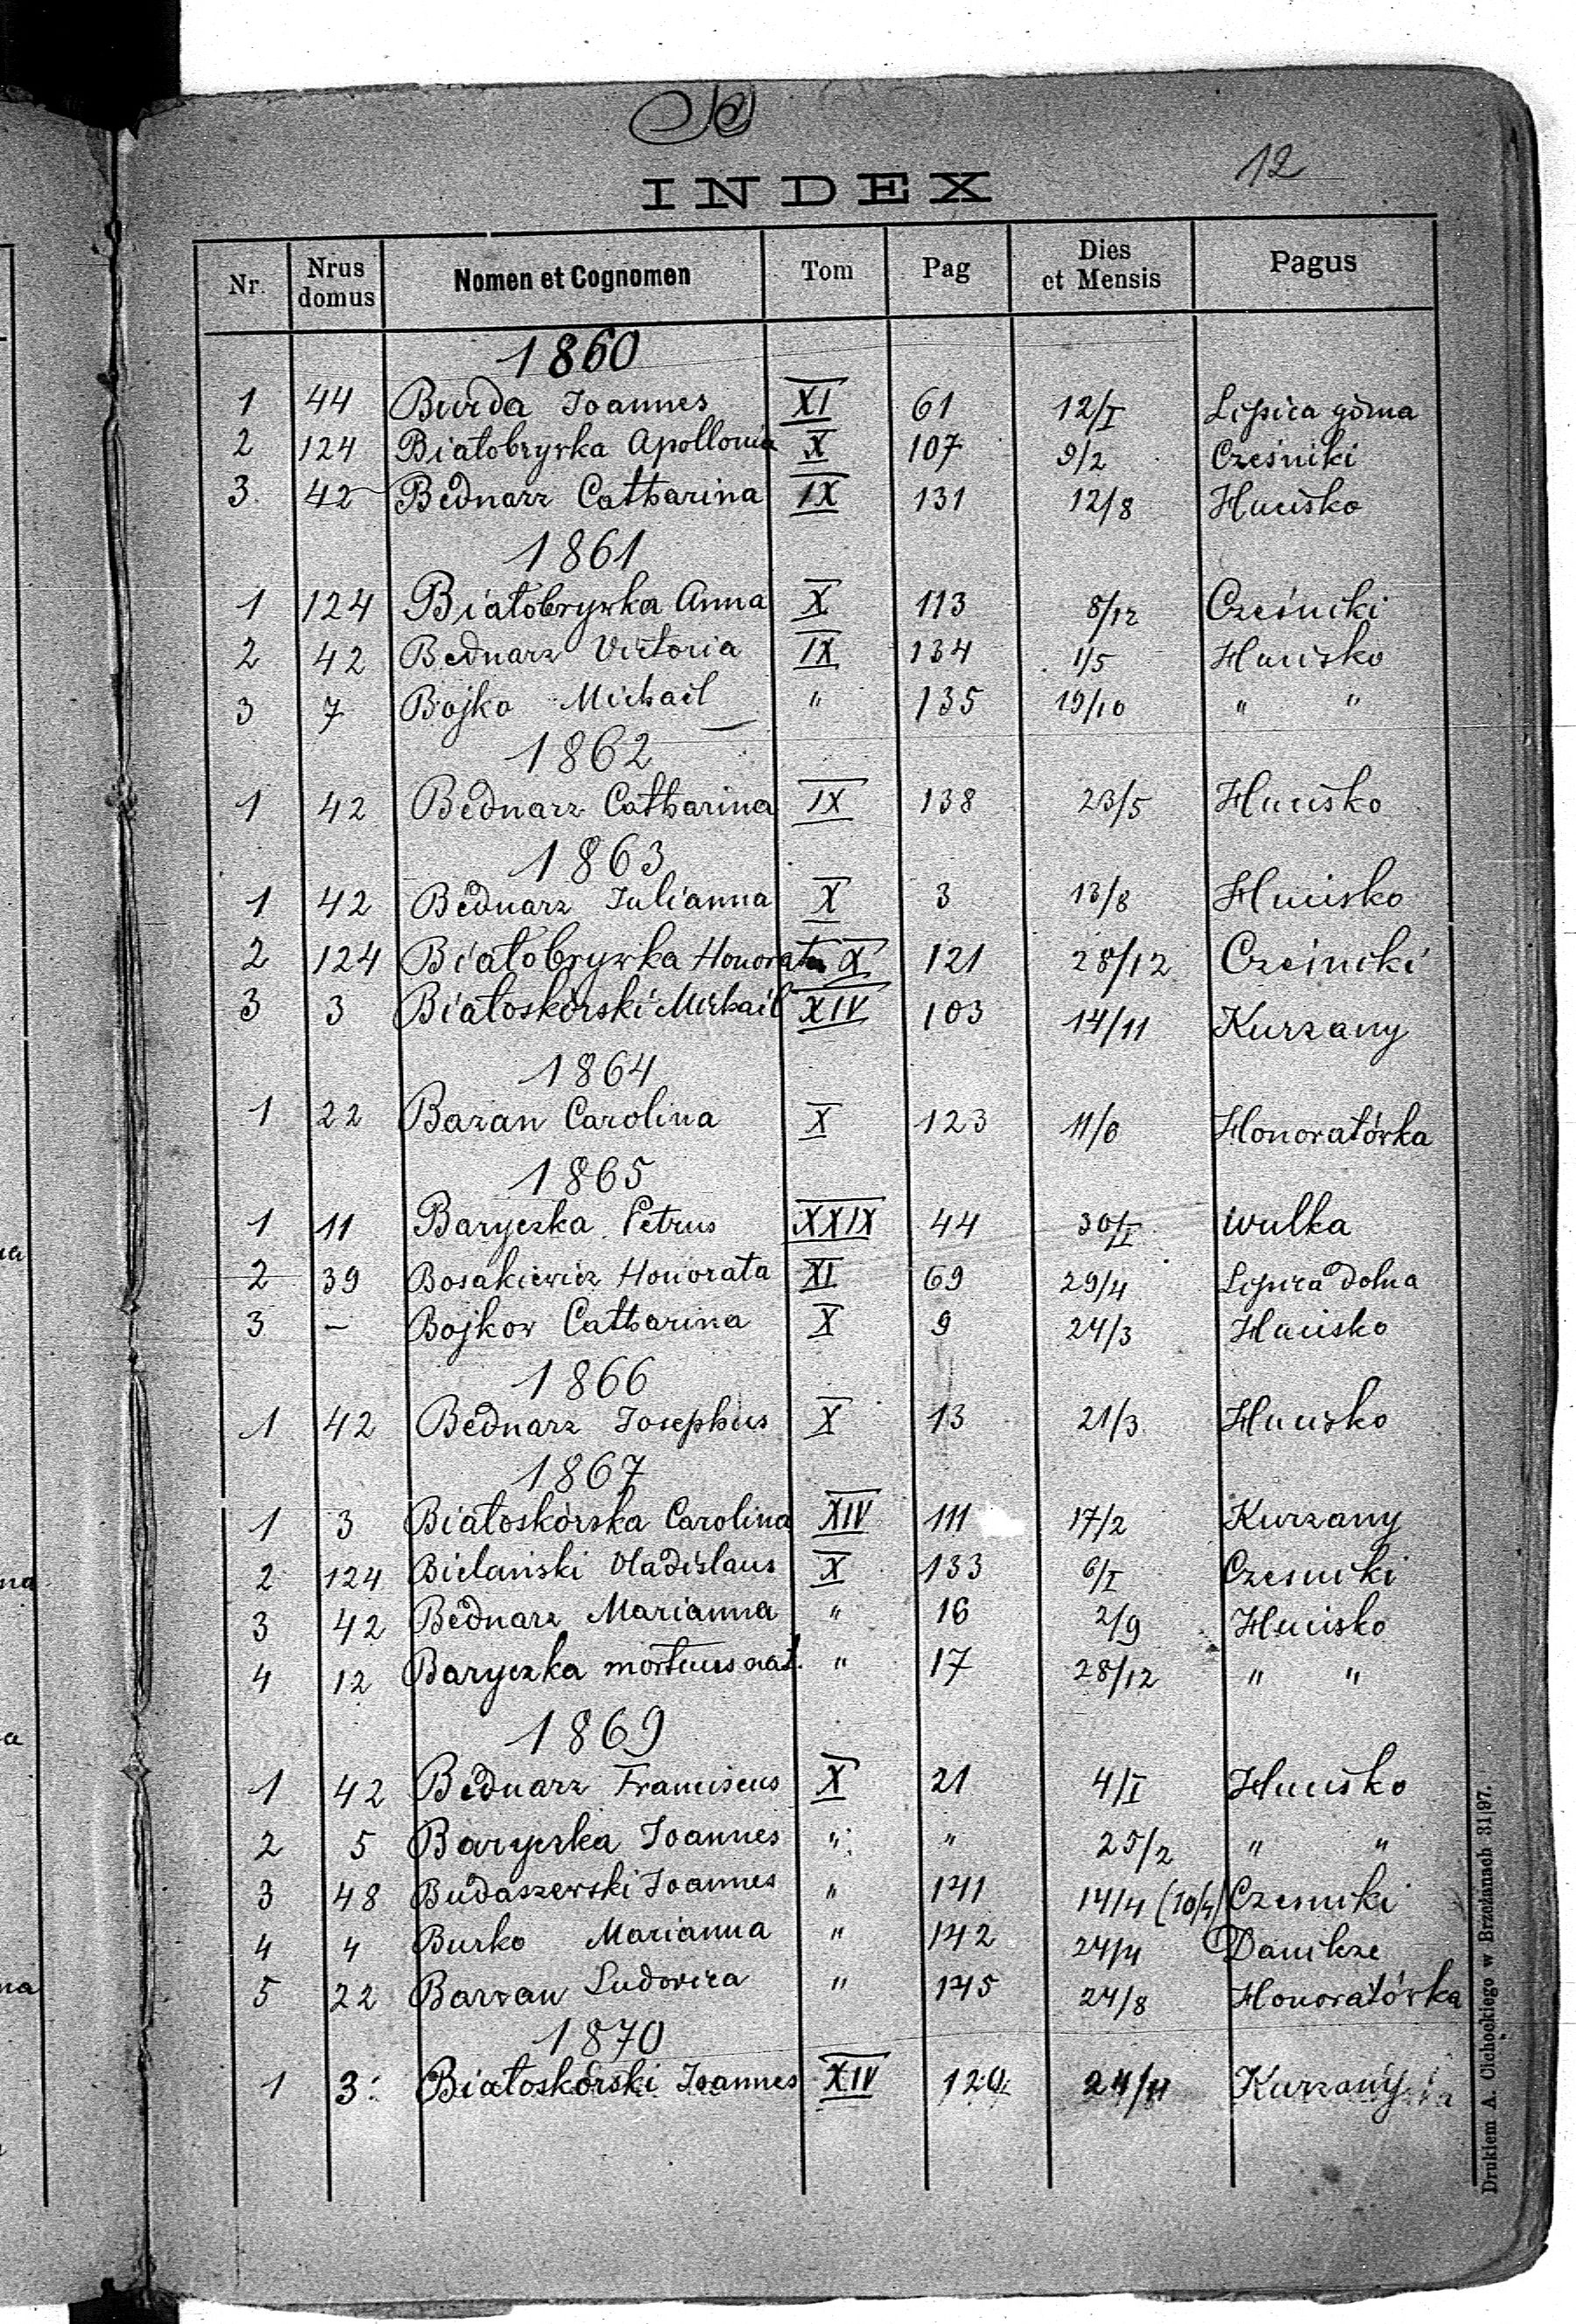 12
INDEX
Nr. Nrus domus Nomen et Cognomen Tom Pag Dies et Mensis Pagus
1860
1 44 Burda Joannes XI 61 12/I Lipica górna
2 124 Białobrywka Apollonia X 107 9/2 Cześniki
3 42 Bednarz Catharina IX 131 12/8 Hucisko
1861
1 124 Białobrywka Anna X 113 8/12 Cześniki
2 42 Bednarz Victoria IX 134 1/5 Hucisko
3 7 Bojko Michael " 135 19/10 " "
1862
1 42 Bednarz Catharina IX 138 23/5 Hucisko
1863
1 42 Bednarz Julianna X 3 13/8 Hucisko
2 124 Białobrywka Honorata X 121 28/12 Cześniki
3 3 Białoskórski Michail XIV 103 14/11 Kurzany
1864
1 22 Bazan Carolina X 123 11/6 Honoratówka
1865
1 11 Baryczka Petrus XXIX 44 30/I Wulka
2 39 Bosakiewicz Honorata XI 69 29/4 Lipica dolna
3 — Bojkow Catharina X 9 24/3 Hucisko
1866
1 42 Bednarz Josephus X 13 21/3 Hucisko
1867
1 3 Białoskórska Carolina XIV 111 17/2 Kurzany
2 124 Bielański Vladislaus X 133 6/I Czesniki
3 42 Bednarz Marianna " 16 2/9 Hucisko
4 12 Baryczka mortuus nat. " 17 28/12 " "
1869
1 42 Bednarz Franciscus X 21 4/I Hucisko
2 5 Baryczka Joannes " " 25/2 " "
3 48 Budaszewski Joannes " 141 14/4 (10/4) Czesniki
4 4 Burko Marianna " 142 24/4 Danilcze
5 22 Barzan Ludovica " 145 24/8 Honoratówka
1870
1 3 Białoskórski Joannes XIV 120 24/11 Kurzany
Drukiem A. Cichockiego w Brzeżanach 31|97.